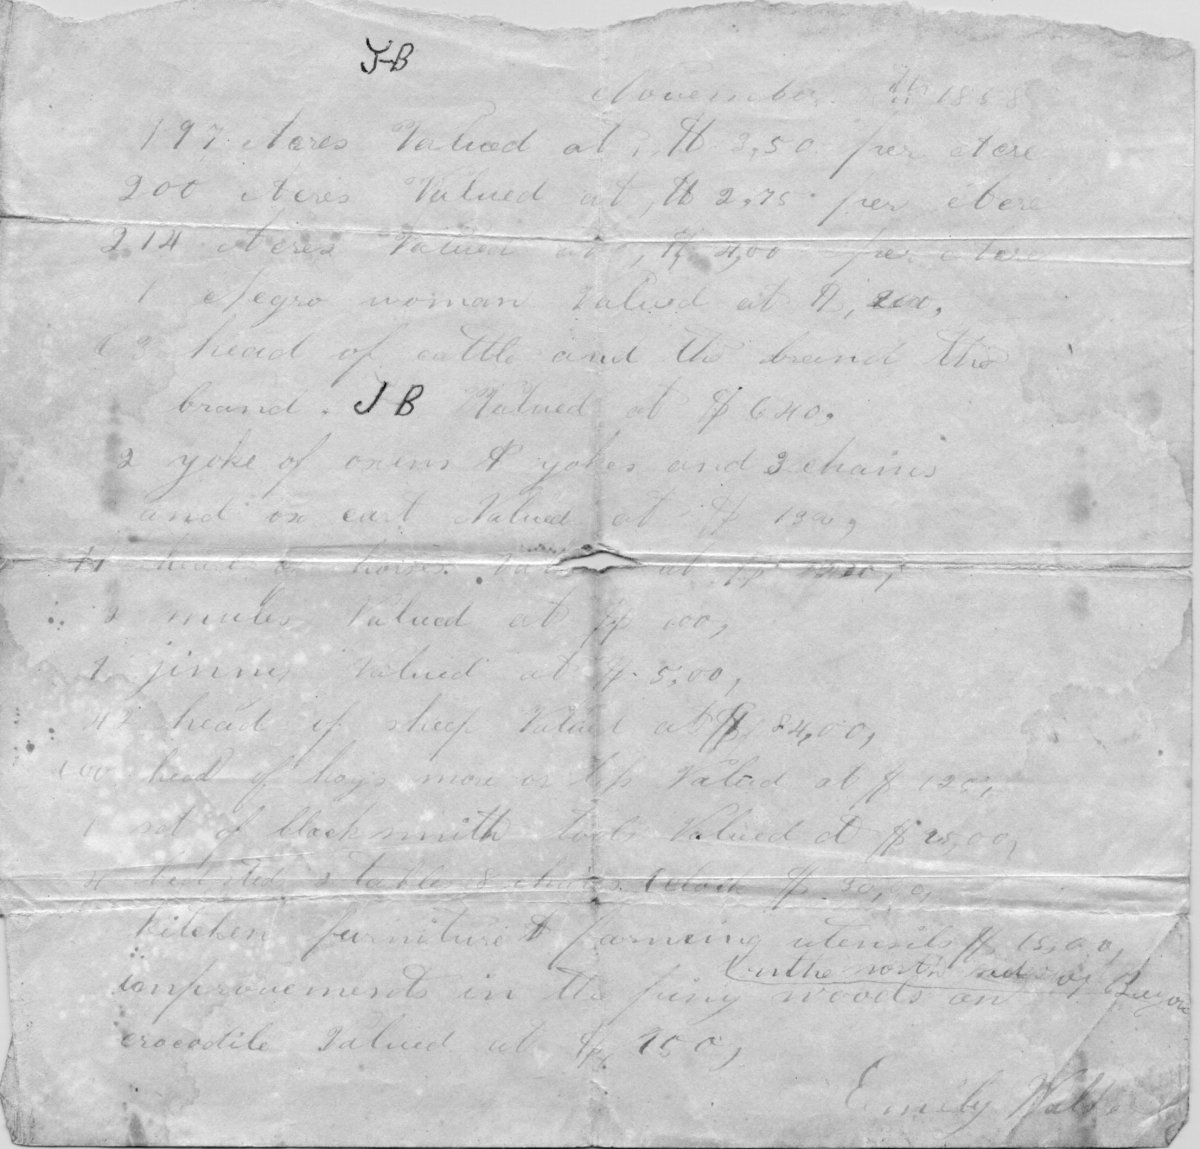 J-B
November 1858
197 Acres Valued at, $ 2,50 per Acre
200 Acres Valued at, $ 2,75 per Acre
214 Acres Valued at, $ 4,00 per Acre
1 Negro woman Valued at $,
63 head of cattle and the brand this
brand. J B Valued at $ 640.
2 yoke of oxens & yokes and 3 chains
and ox cart Valued at $ 130,
head of horses Valued at $
mules Valued at $
jinny Valued at $ 5,00,
42 head of sheep Valued at $ 84,00,
100 head of hogs more or less Valued at $ 125,
1 set of blacksmith tools Valued at $ 25,00,
4 bedsteds 2 table 8 chairs 1 clock $ 30,00,
kitchen furniture & farming utensils $ 15,00,
on the north side of Bayou
improvements in the piny woods on
crocodile Valued at $ 150,
Emily